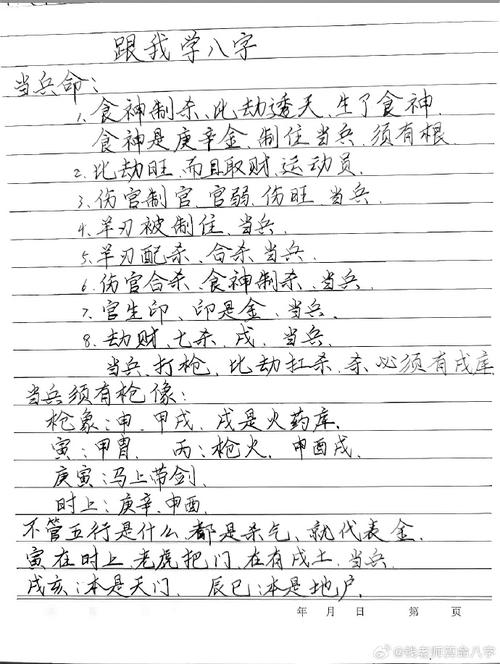 跟我学八字
当兵命：
1. 食神制杀、比劫透天、生了食神
食神是庚辛金、制住当兵、须有根
2. 比劫旺、而且取财、运动员、
3. 伤官制官、官弱、伤旺、当兵、
4. 羊刃被制住、当兵、
5. 羊刃配杀、合杀当兵、
6. 伤官合杀、食神制杀、当兵、
7. 官生印、印是金、当兵、
8. 劫财、七杀、戌、当兵、
当兵、打枪、比劫扛杀、杀必须有戌库
当兵须有枪像：
枪象：申、甲戌、戌是火药库、
寅：甲胄、丙：枪火、申酉戌、
庚寅：马上带剑、
时上：庚辛、申酉、
不管五行是什么、都是杀气、就代表金、
寅在时上、老虎把门、在有戌土、当兵、
戌亥：本是天门、辰巳：本是地户、
年 月 日 第 页
@钱老师算命八字